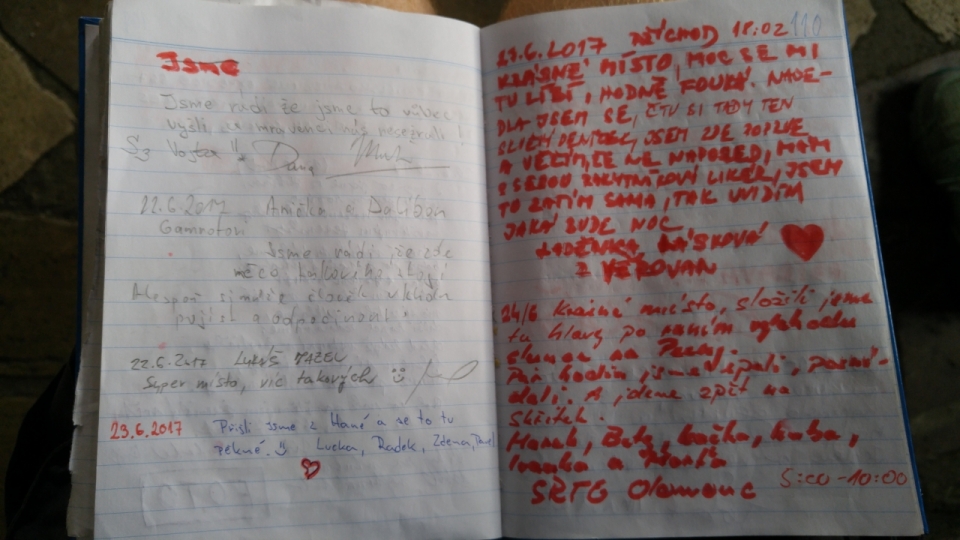 Jsme
Jsme rádi že jsme to vůbec
vyšli a mravenci nás nesežrali!
Vojta Dana
22.6.2017 Anička a Dalibor
Jsme rádi, že zde
něco takového stojí
Alespoň si může člověk v klidu
a odpočinout
22.6.2017 LUKÁŠ
Super místo, víc takových
23.6.2017 Přišli jsme z Hané a je to tu
pěkné. Lucka, Radek, Zdena, Pavel
110
23.6.2017 18:02
KRÁSNÉ MÍSTO, MOC SE MI
TU LÍBÍ, HODNĚ FOUKÁ. NADE-
DLA JSEM SE, ČTU SI TADY TEN
DENÍČEK, JSEM ZDE POPRVÉ
A VĚŘÍM, ŽE NE NAPOSLED, MÁM
S SEBOU LIKÉR, JSEM
TO ZATÍM SAMA, TAK UVIDÍM
JAKÁ BUDE NOC
LÁSKOVÁ
Z VĚROVAN
24/6 Krásné místo, složili jsme
tu hlavy po ranním východu
slunce na
Pár hodin jsme pospali, posní-
dali. A jdeme zpět na
Skřítek.
Marek, Bety, Kačka, Kuba,
Ivanka a
SRTG Olomouc 5:00-10:00